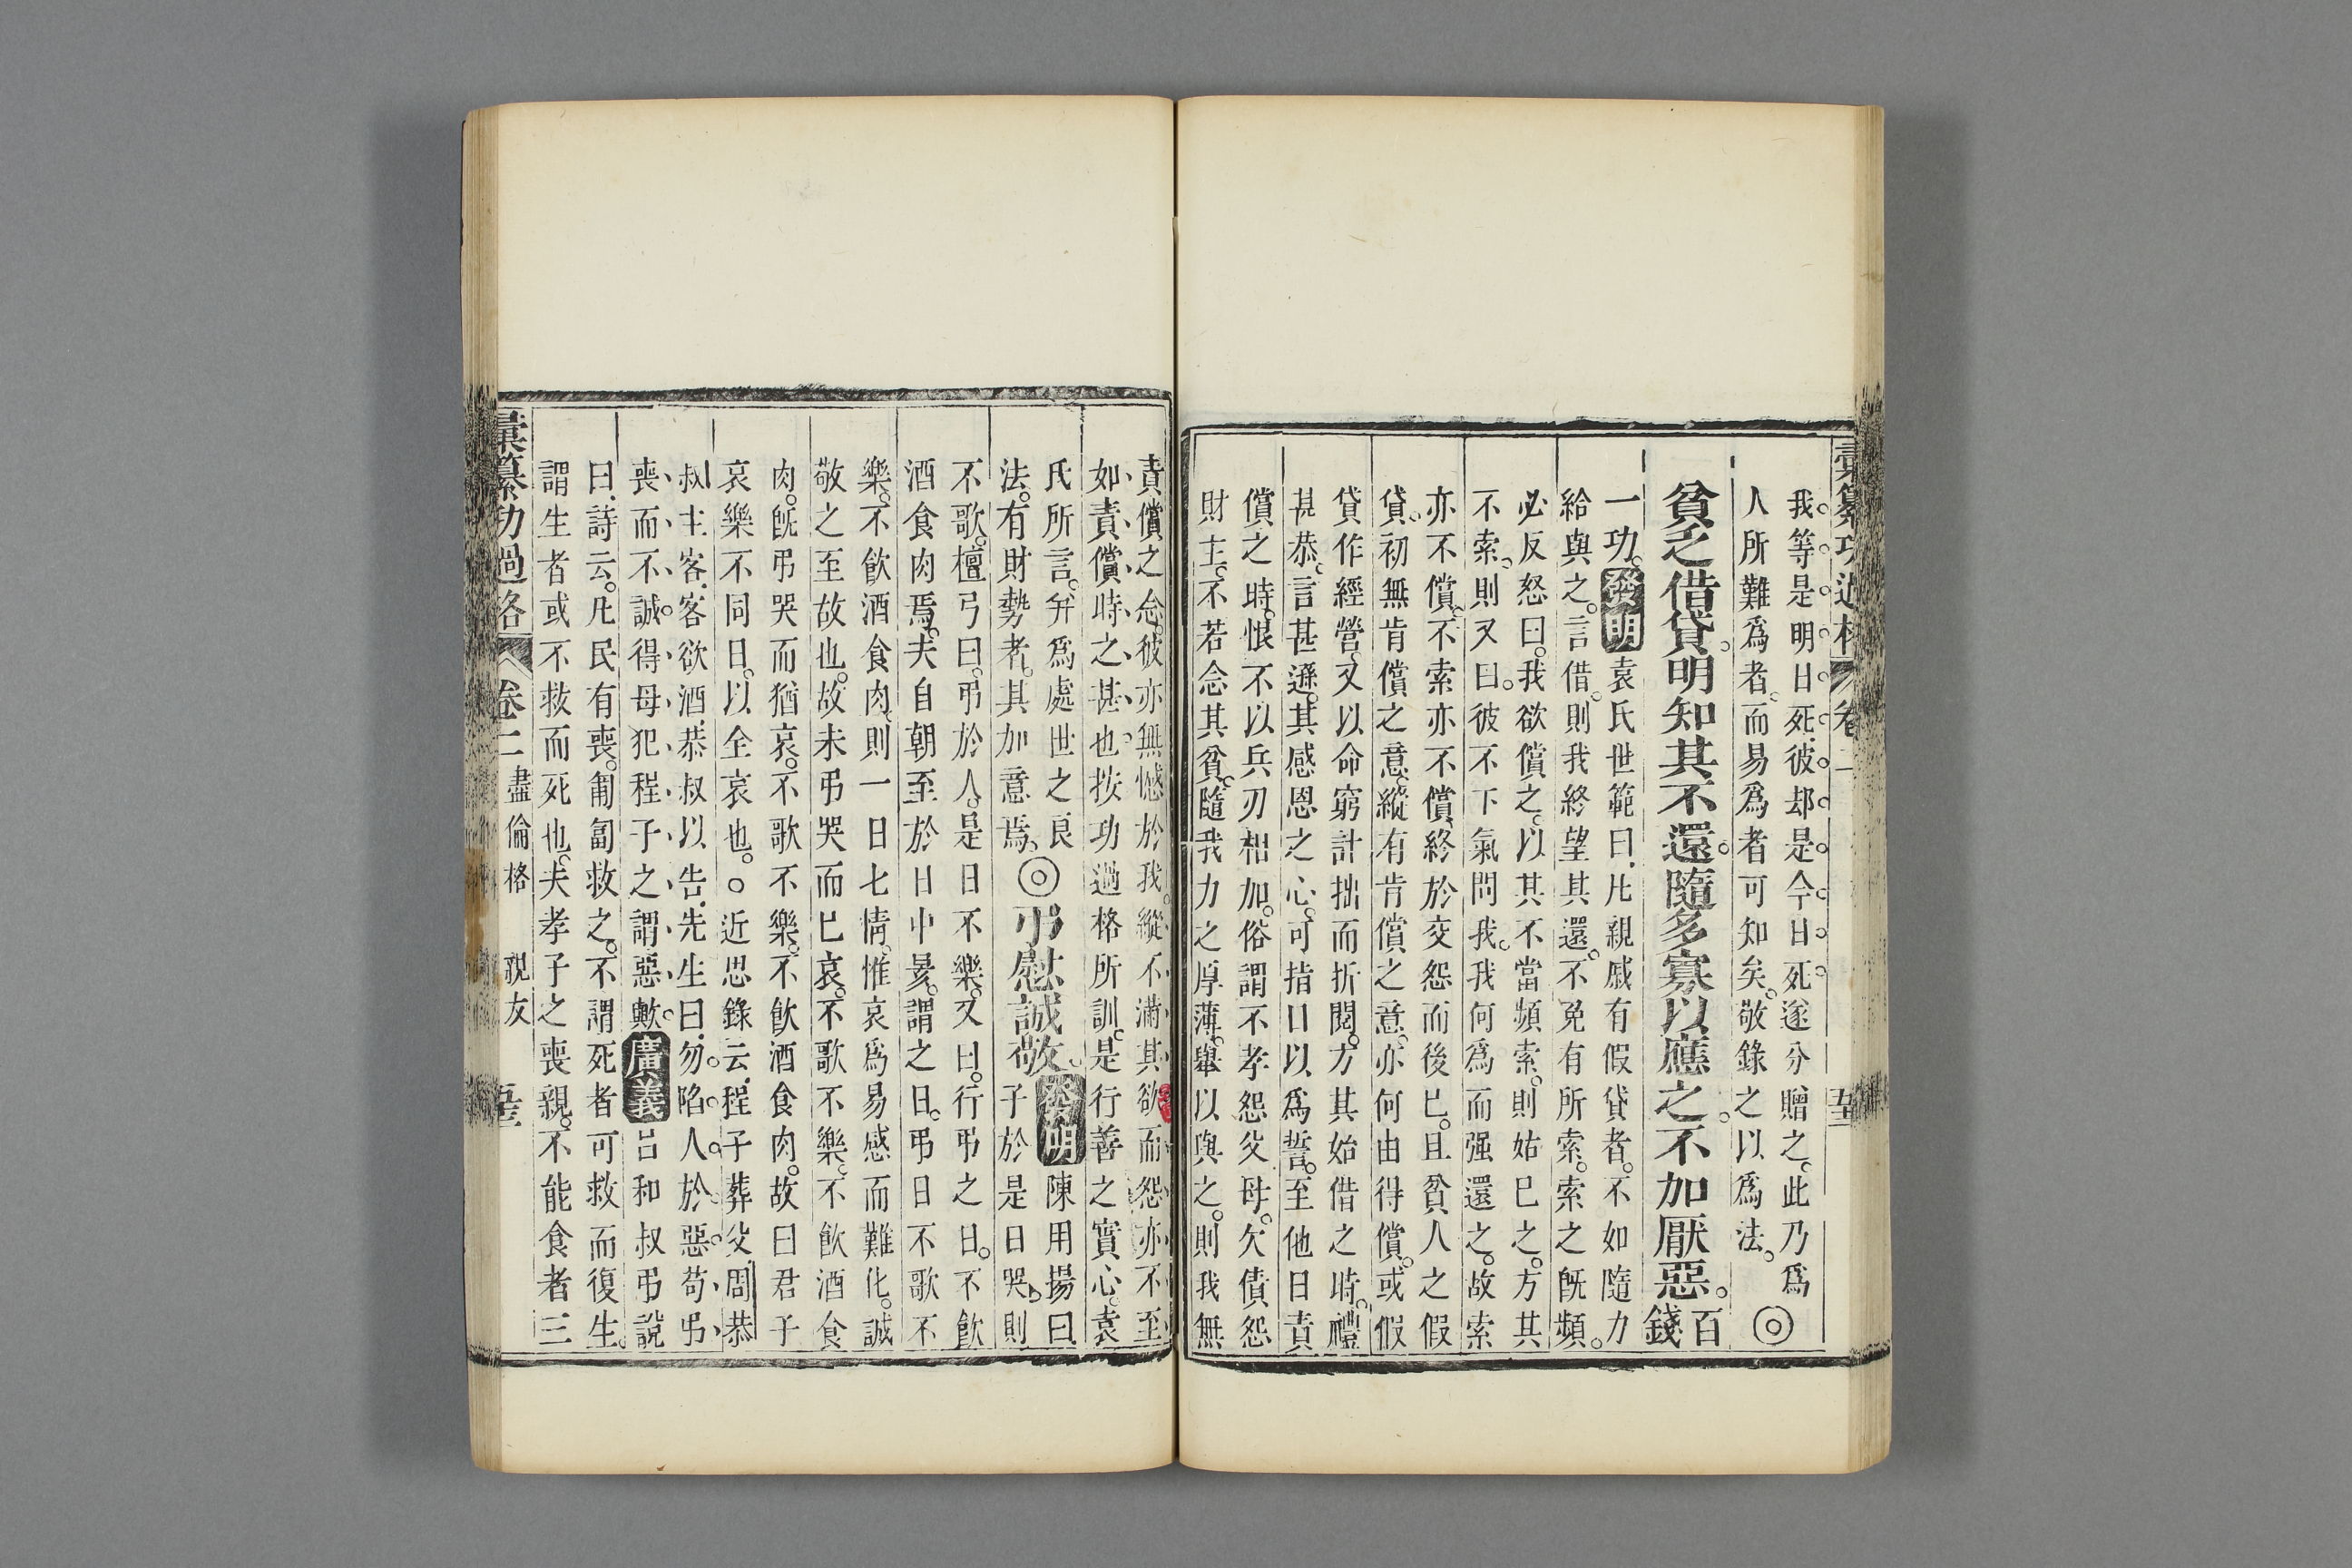 彙纂功過格 卷二 五
我等是明日死彼却是今日死遂分贈之此乃爲
人所難爲者而易爲者可知矣敬錄之以爲法◎
貧乏借貸明知其不還隨多寡以應之不加厭惡百錢
一功發明袁氏世範曰凡親戚有假貸者不如隨力
給與之言借則我終望其還不免有所索索之旣頻
必反怒曰我欲償之以其不當頻索則姑已之方其
不索則又曰彼不下氣問我我何爲而强還之故索
亦不償不索亦不償終於交怨而後已且貧人之假
貸初無肯償之意縱有肯償之意亦何由得償或假
貸作經營又以命窮計拙而折閱方其始借之時禮
甚恭言甚遜其感恩之心可指日以爲誓至他日責
償之時恨不以兵刃相加俗謂不孝怨父母欠債怨
財主不若念其貧隨我力之厚薄舉以與之則我無
責償之念彼亦無憾於我縱不滿其欲而怨亦不至
如責償時之甚也按功過格所訓是行善之實心袁
氏所言幷爲處世之良
法有財勢者其加意焉◎弔慰誠敬發明陳用揚曰
子於是日哭則
不歌檀弓曰弔於人是日不樂又曰行弔之日不飮
酒食肉焉夫自朝至於日中昃謂之日弔日不歌不
樂不飮酒食肉則一日七情惟哀爲易感而難化誠
敬之至故也故未弔哭而已哀不歌不樂不飮酒食
肉旣弔哭而猶哀不歌不樂不飮酒食肉故曰君子
哀樂不同日以全哀也○近思錄云程子葬父周恭
叔主客客欲酒恭叔以告先生曰勿陷人於惡苟弔
喪而不誠得毋犯程子之謂惡歟廣義呂和叔弔說
曰詩云凡民有喪匍匐救之不謂死者可救而復生
謂生者或不救而死也夫孝子之喪親不能食者三
彙纂功過格 卷二 盡倫格 親友